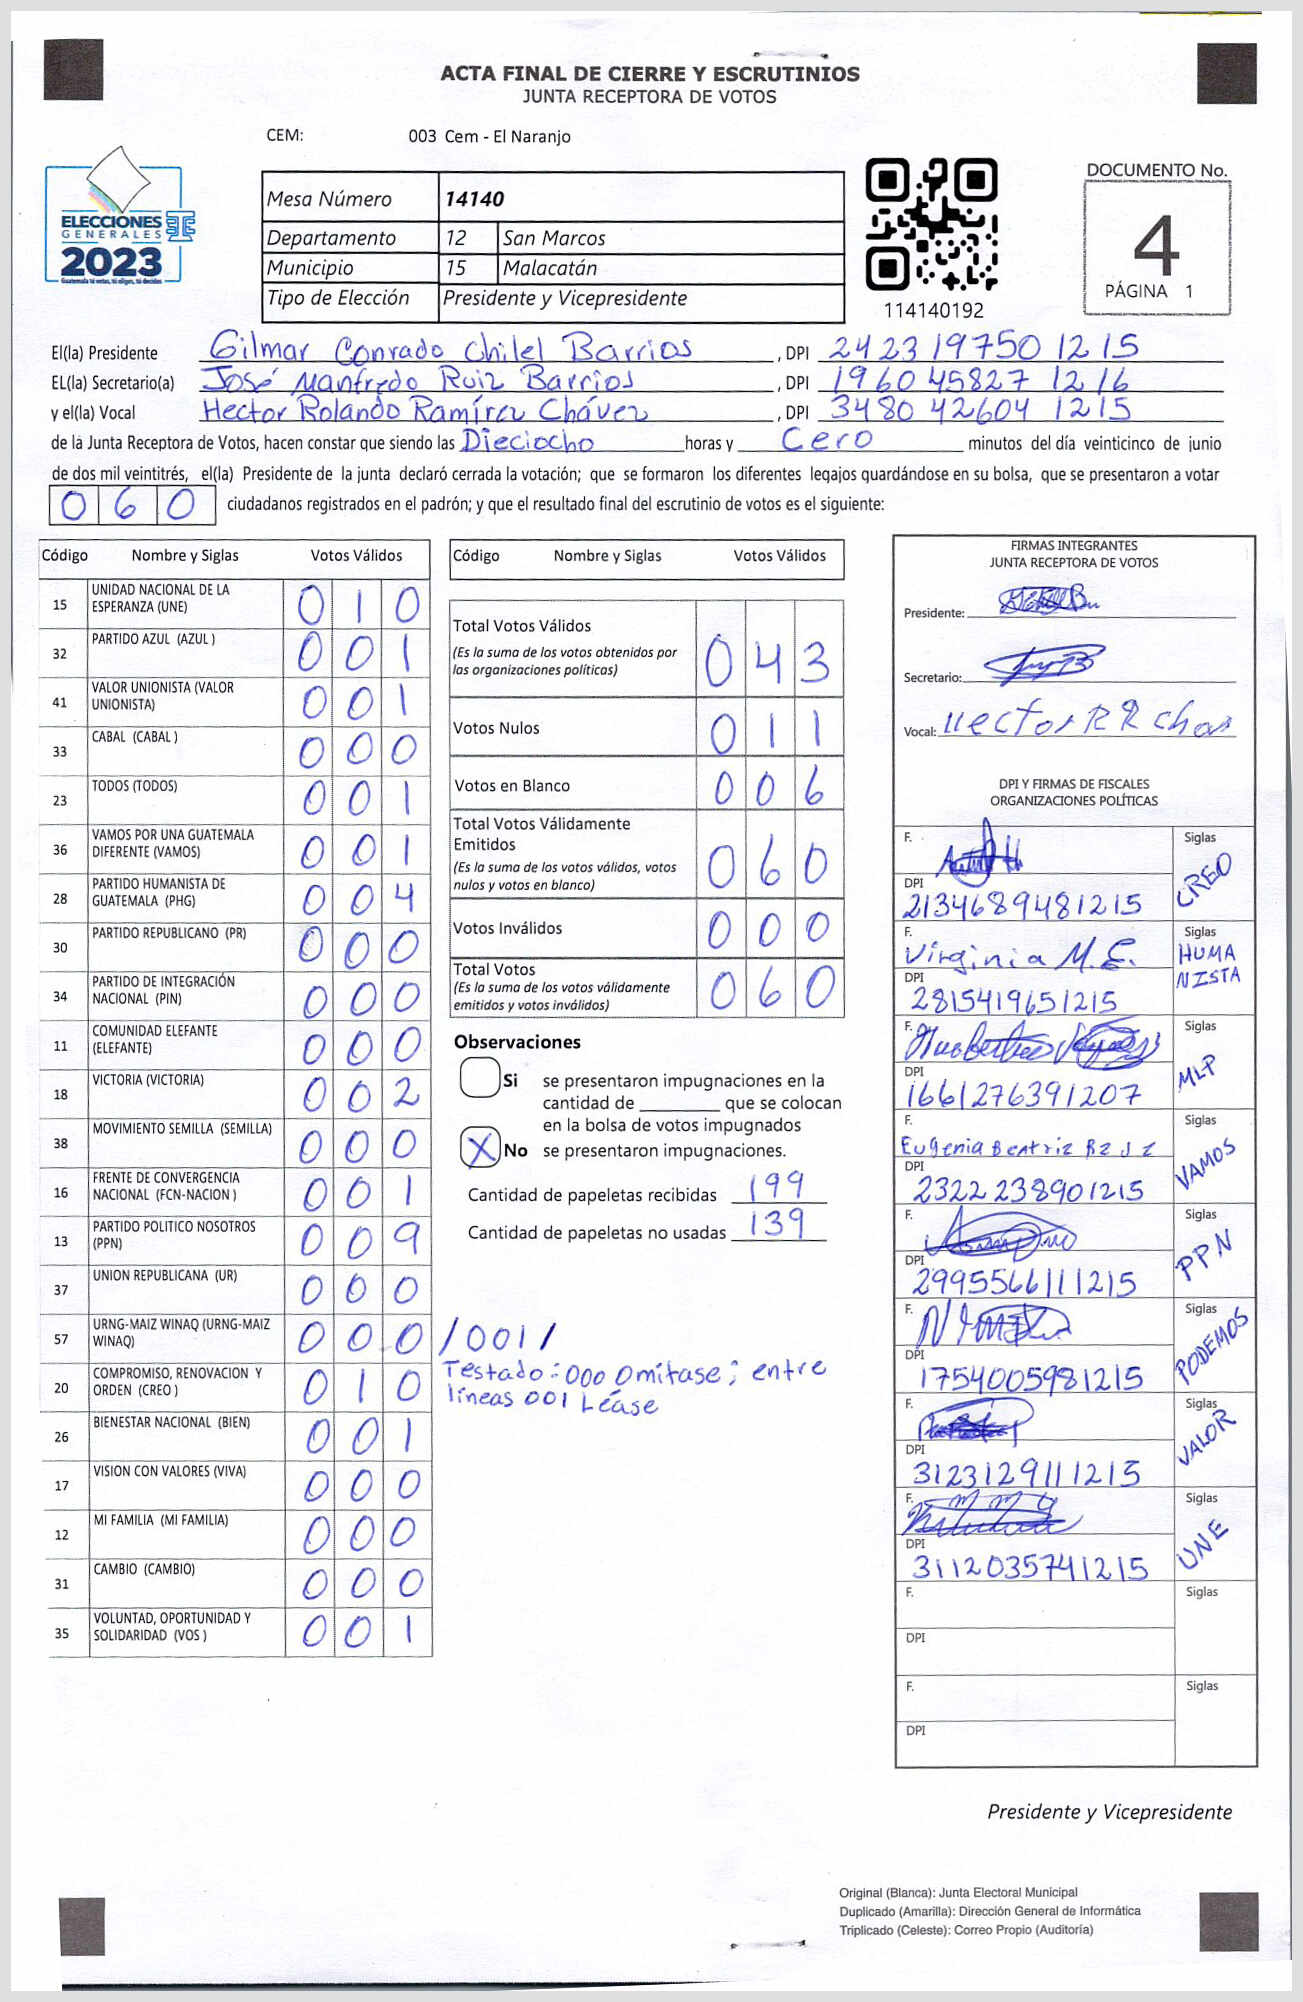 ACTA FINAL DE CIERRE Y ESCRUTINIOS
JUNTA RECEPTORA DE VOTOS
CEM: 003 Cem - El Naranjo
ELECCIONES
GENERALES
2023
Guatemala tú votas, tú eliges, tú decides
Mesa Número 14140
Departamento 12 San Marcos
Municipio 15 Malacatán
Tipo de Elección Presidente y Vicepresidente
114140192
DOCUMENTO No.
4
PÁGINA 1
El(la) Presidente Gilmar Conrado Chilel Barrios, DPI 2423197501215
EL(la) Secretario(a) José Manfredo Ruiz Barrios, DPI 1960 45827 1216
y el(la) Vocal Hector Rolando Ramírez Chávez, DPI 3480 42604 1215
de la Junta Receptora de Votos, hacen constar que siendo las Dieciocho horas y Cero minutos del día veinticinco de junio
de dos mil veintitrés, el(la) Presidente de la junta declaró cerrada la votación; que se formaron los diferentes legajos guardándose en su bolsa, que se presentaron a votar
060 ciudadanos registrados en el padrón; y que el resultado final del escrutinio de votos es el siguiente:
Código Nombre y Siglas Votos Válidos
15 UNIDAD NACIONAL DE LA ESPERANZA (UNE) 010
32 PARTIDO AZUL (AZUL ) 001
41 VALOR UNIONISTA (VALOR UNIONISTA) 001
33 CABAL (CABAL ) 000
23 TODOS (TODOS) 001
36 VAMOS POR UNA GUATEMALA DIFERENTE (VAMOS) 001
28 PARTIDO HUMANISTA DE GUATEMALA (PHG) 004
30 PARTIDO REPUBLICANO (PR) 000
34 PARTIDO DE INTEGRACIÓN NACIONAL (PIN) 000
11 COMUNIDAD ELEFANTE (ELEFANTE) 000
18 VICTORIA (VICTORIA) 002
38 MOVIMIENTO SEMILLA (SEMILLA) 000
16 FRENTE DE CONVERGENCIA NACIONAL (FCN-NACION ) 001
13 PARTIDO POLITICO NOSOTROS (PPN) 009
37 UNION REPUBLICANA (UR) 000
57 URNG-MAIZ WINAQ (URNG-MAIZ WINAQ) 000 /001/
20 COMPROMISO, RENOVACION Y ORDEN (CREO ) 010
26 BIENESTAR NACIONAL (BIEN) 001
17 VISION CON VALORES (VIVA) 000
12 MI FAMILIA (MI FAMILIA) 000
31 CAMBIO (CAMBIO) 000
35 VOLUNTAD, OPORTUNIDAD Y SOLIDARIDAD (VOS ) 001
Código Nombre y Siglas Votos Válidos
Total Votos Válidos 043
(Es la suma de los votos obtenidos por
las organizaciones políticas)
Votos Nulos 011
Votos en Blanco 006
Total Votos Válidamente
Emitidos 060
(Es la suma de los votos válidos, votos
nulos y votos en blanco)
Votos Inválidos 000
Total Votos 060
(Es la suma de los votos válidamente
emitidos y votos inválidos)
Observaciones
Si se presentaron impugnaciones en la
cantidad de ________ que se colocan
en la bolsa de votos impugnados
X No se presentaron impugnaciones.
Cantidad de papeletas recibidas 199
Cantidad de papeletas no usadas 139
Testado: 000 Omitase; entre
líneas 001 Léase
FIRMAS INTEGRANTES
JUNTA RECEPTORA DE VOTOS
Presidente:
Secretario:
Vocal: Hector R R
DPI Y FIRMAS DE FISCALES
ORGANIZACIONES POLÍTICAS
F. Siglas CREO
DPI 2134689481215
F. Virginia M.E. Siglas HUMANISTA
DPI 2815419651215
F. Siglas MLP
DPI 1661276391207
F. Eugenia Beatriz Siglas VAMOS
DPI 2322 238901215
F. Siglas PPN
DPI 2995566111215
F. Siglas PODEMOS
DPI 1754005981215
F. Siglas VALOR
DPI 3123129111215
F. Siglas UNE
DPI 3112035741215
F. Siglas
DPI
F. Siglas
DPI
Presidente y Vicepresidente
Original (Blanca): Junta Electoral Municipal
Duplicado (Amarilla): Dirección General de Informática
Triplicado (Celeste): Correo Propio (Auditoría)